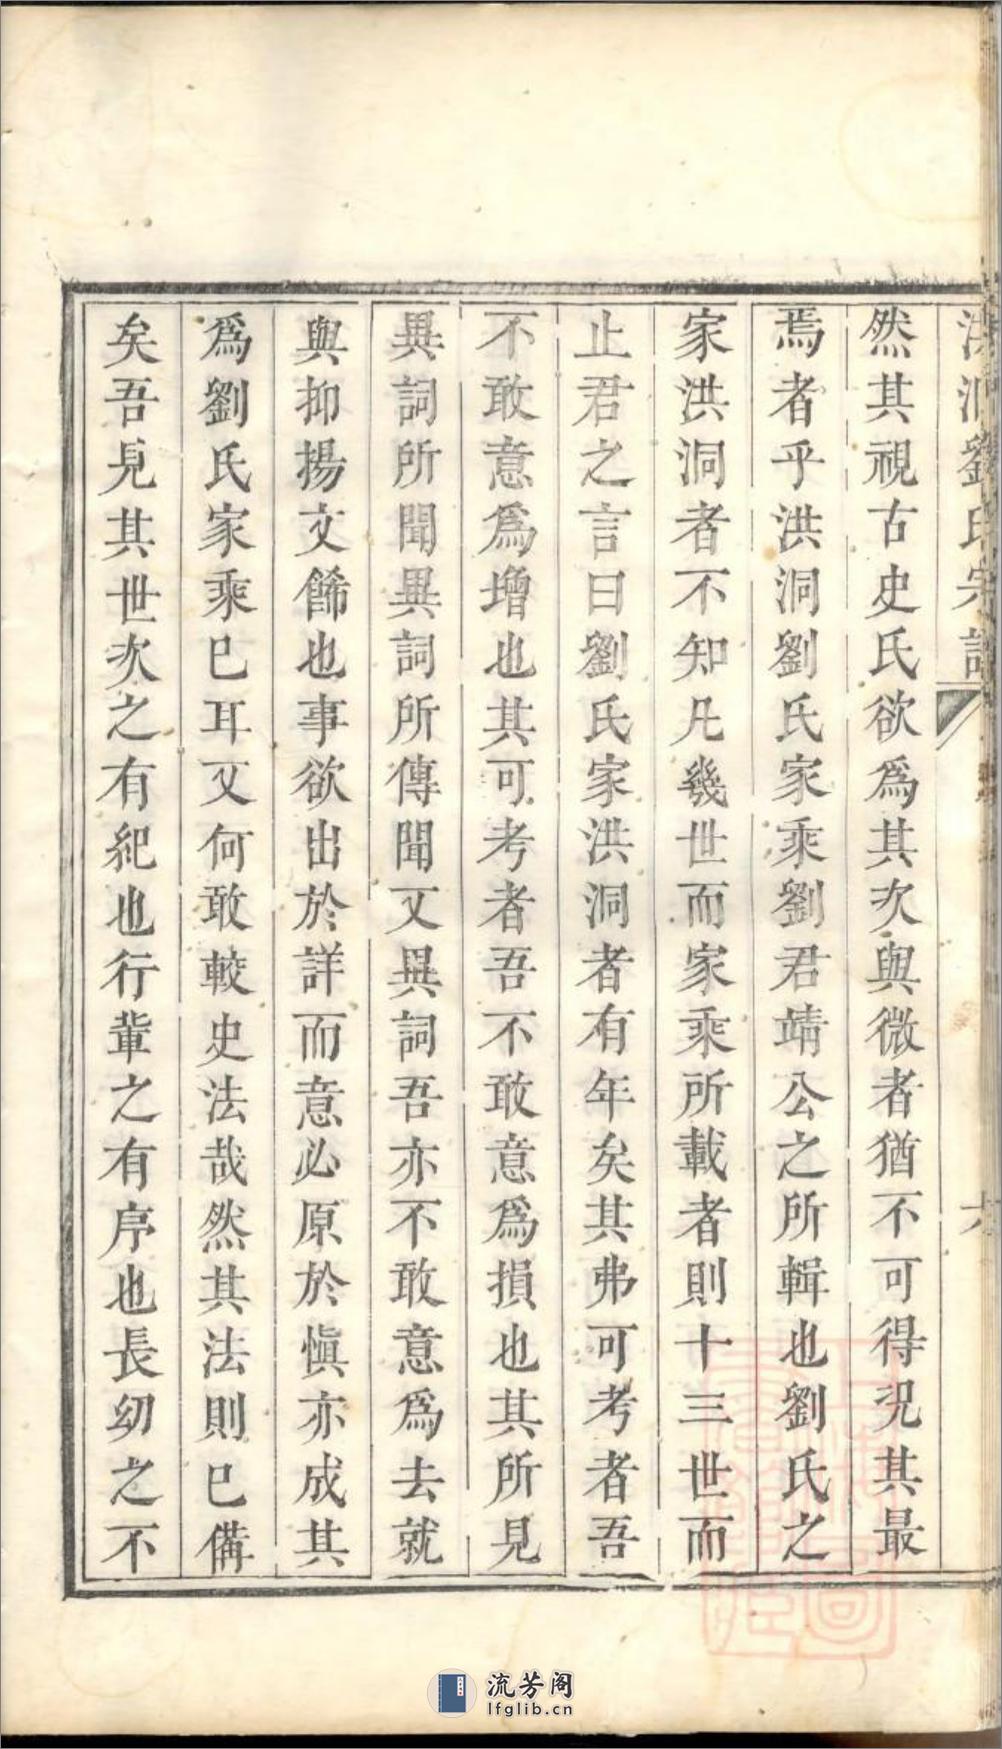 洪洞劉氏宗譜
六
然其視古史氏欲爲其次與微者猶不可得况其最
焉者乎洪洞劉氏家乘劉君靖公之所輯也劉氏之
家洪洞者不知凡幾世而家乘所載者則十三世而
止君之言曰劉氏家洪洞者有年矣其弗可考者吾
不敢意爲增也其可考者吾不敢意爲損也其所見
異詞所聞異詞所傳聞又異詞吾亦不敢意爲去就
與抑揚文餙也事欲出於詳而意必原於愼亦成其
爲劉氏家乘已耳又何敢較史法哉然其法則已備
矣吾見其世次之有紀也行軰之有序也長幼之不
流芳阁
lfglib.cn